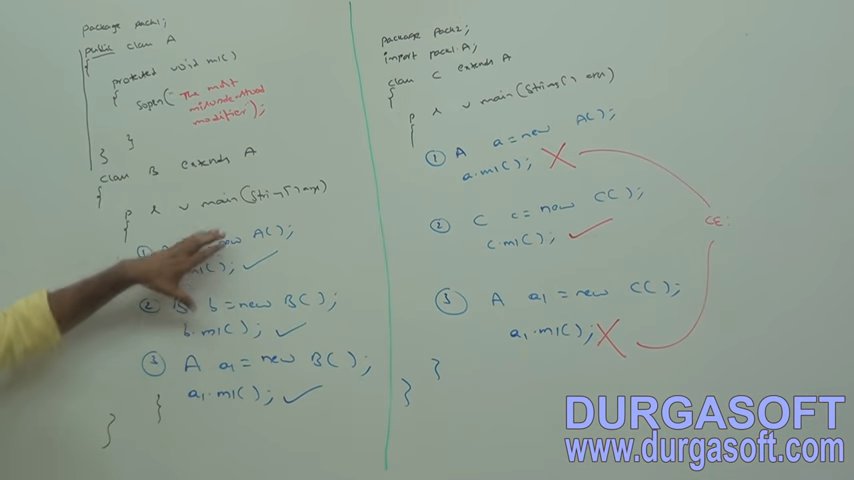 package pack1;
public class A
{
protected void m1()
{
Sopln("The most
misunderstood
modifier");
}
}
class B extends A
{
p s v main(String[] args)
{
①
new A();
m1(); ✓
② B b = new B();
b.m1(); ✓
③ A a1 = new B();
a1.m1(); ✓
}
}
package pack2;
import pack1.A;
class C extends A
{
p s v main(String[] args)
{
① A a = new A();
a.m1(); X
② C c = new C();
c.m1(); ✓
③ A a1 = new C();
a1.m1(); X
}
}
CE:
DURGASOFT
www.durgasoft.com